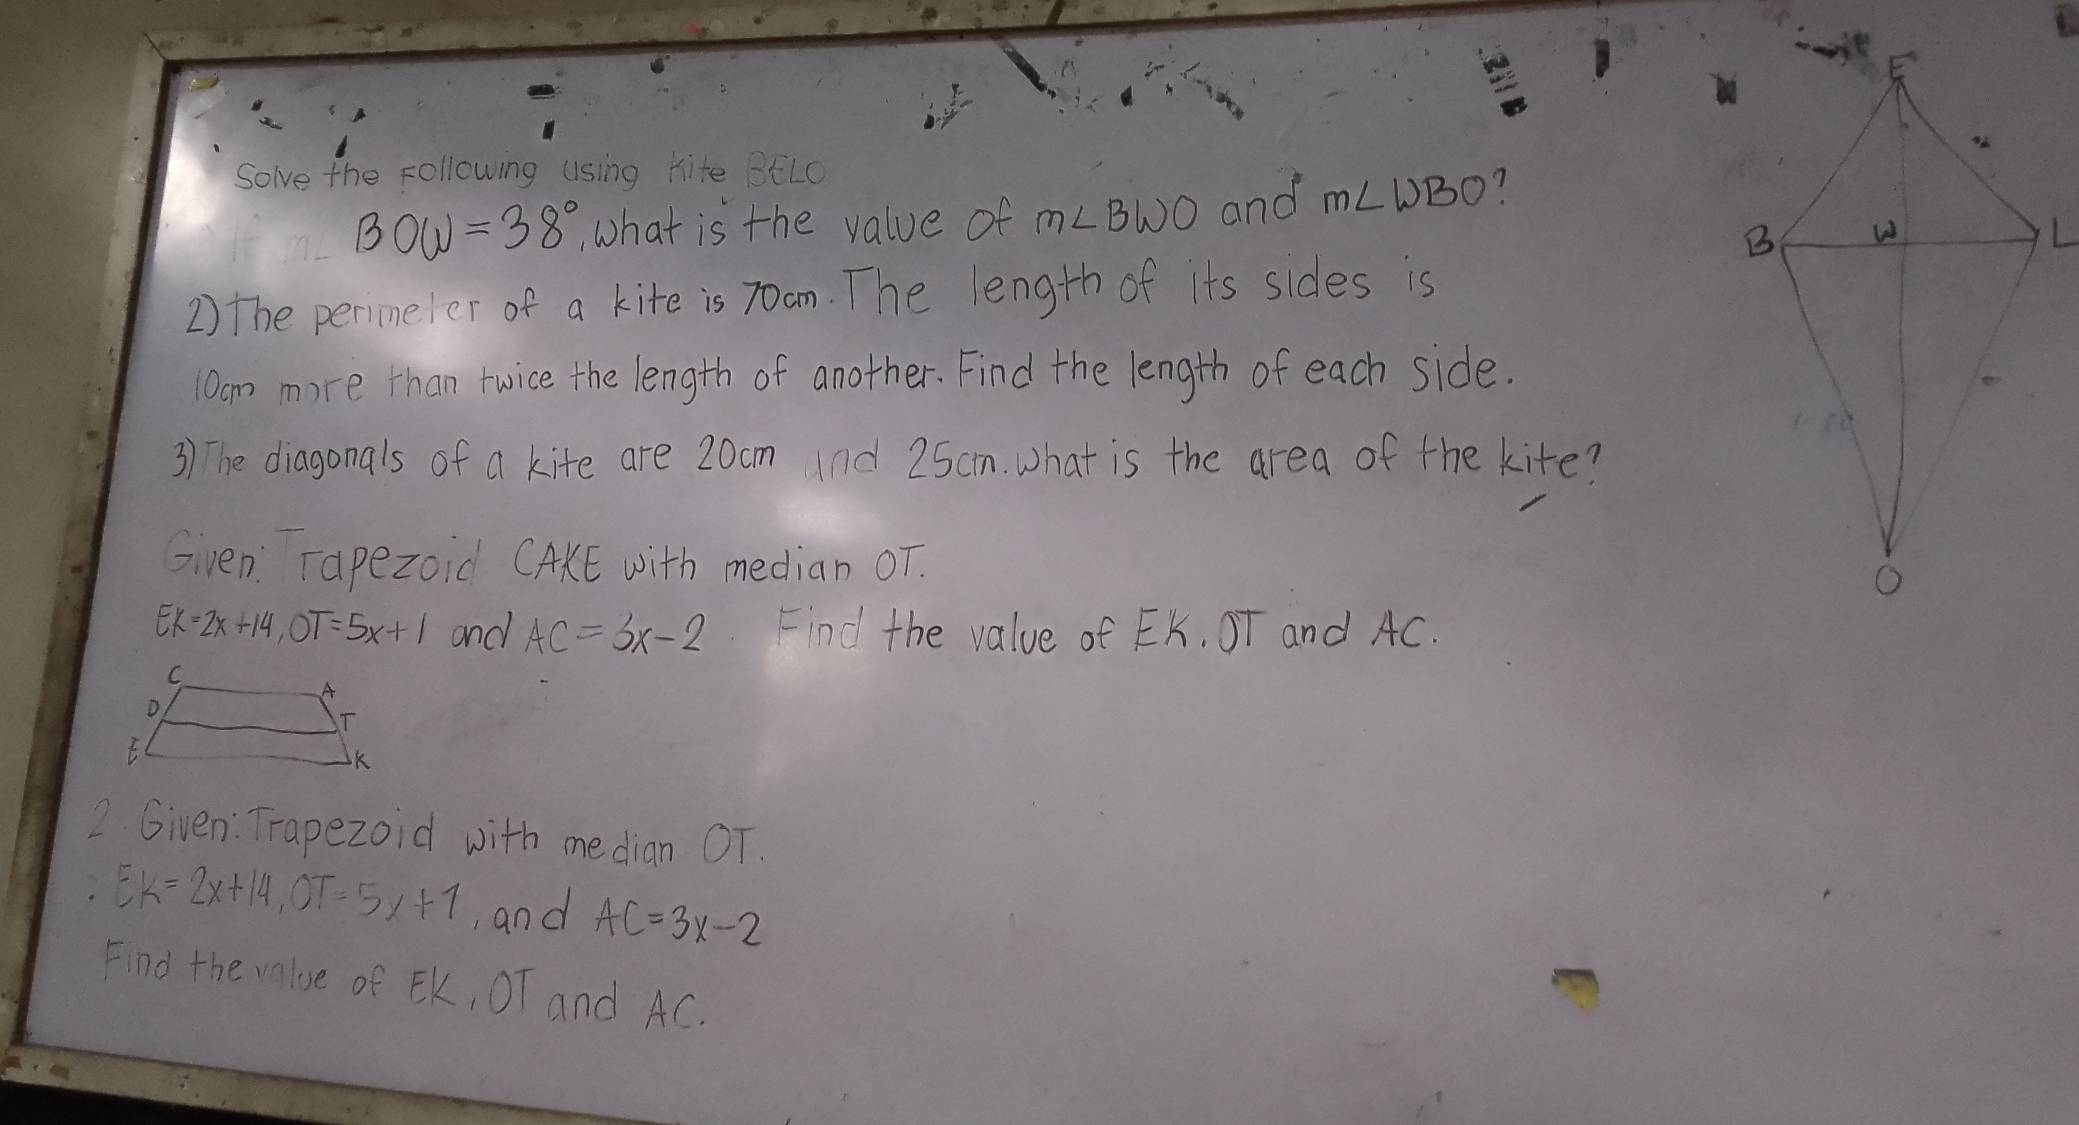 Solve the Following using Kite BELO
1) If m∠ BOW = 38°, what is the value of m∠BWO and m∠WBO?
2) The perimeter of a kite is 70cm. The length of its sides is
10cm more than twice the length of another. Find the length of each side.
3) The diagonals of a kite are 20cm and 25cm. What is the area of the kite?
Given: Trapezoid CAKE with median OT.
EK=2x+14, OT=5x+1 and AC=3x-2. Find the value of EK, OT and AC.
C
A
O
T
E
K
2. Given: Trapezoid with median OT.
EK=2x+14, OT=5x+1, and AC=3x-2
Find the value of EK, OT and AC.
E
B
W
L
O